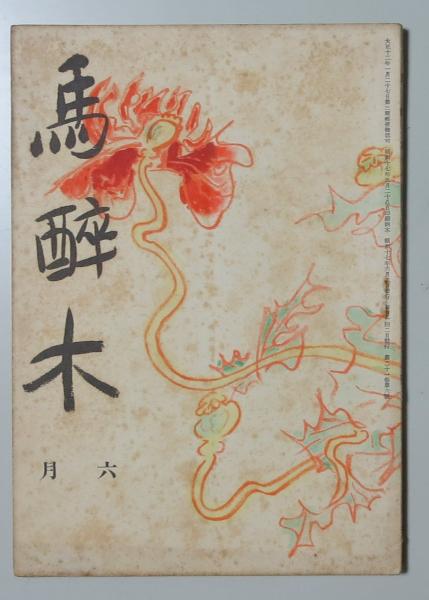 馬醉木
六月
大正十二年一月二十七日第三種郵便物認可 昭和十七年五月二十八日印刷納本 昭和十七年六月一日發行 第二十一卷第六號